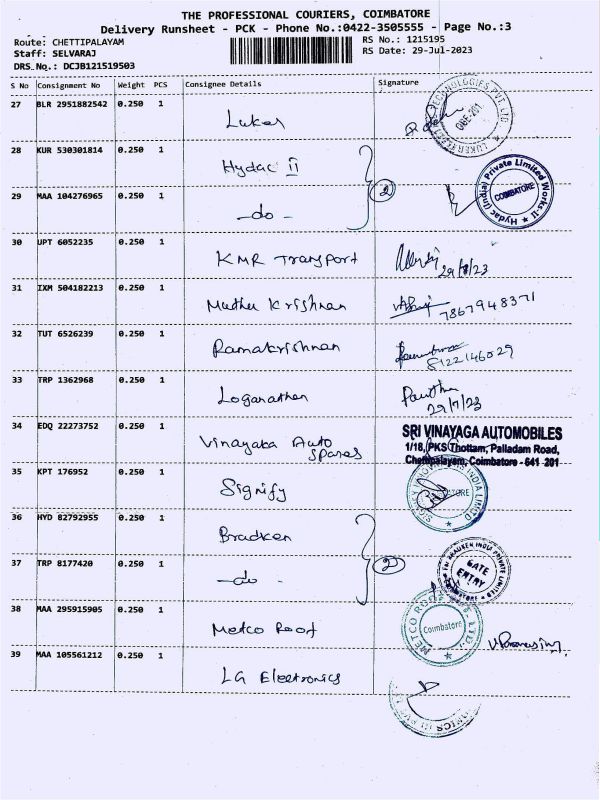 THE PROFESSIONAL COURIERS, COIMBATORE
Delivery Runsheet - PCK - Phone No.:0422-3505555 - Page No.:3
Route: CHETTIPALAYAM
RS No.: 1215195
Staff: SELVARAJ
RS Date: 29-Jul-2023
DRS No.: DCJB121519503
S No Consignment No Weight PCS Consignee Details Signature
27 BLR 2951882542 0.250 1 Luker
28 KUR 530301814 0.250 1 Hydac II
29 MAA 104276965 0.250 1 -do-
2
Hydac (India) Private Limited Works-II
COIMBATORE
30 UPT 6052235 0.250 1 KMR Transport
29/7/23
31 IXM 504182213 0.250 1 Muthu Krishnan
7867948371
32 TUT 6526239 0.250 1 Ramakrishnan
8122146029
33 TRP 1362968 0.250 1 Loganathan
29/7/23
34 EDQ 22273752 0.250 1 Vinayaka Auto
Spares
SRI VINAYAGA AUTOMOBILES
1/18, PKS Thottam, Palladam Road,
Chettipalayam, Coimbatore - 641 201
35 KPT 176952 0.250 1 Signify
36 HYD 82792955 0.250 1 Bradken
37 TRP 8177420 0.250 1 -do-
2
GATE
ENTRY
38 MAA 295915905 0.250 1 Metco Roof
METCO ROOF
Coimbatore
39 MAA 105561212 0.250 1 LG Electronics